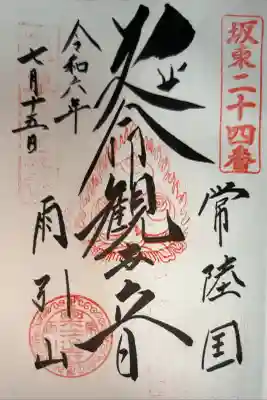 坂東二十四番
常陸国
延命観世音
雨引山
令和六年
七月十五日